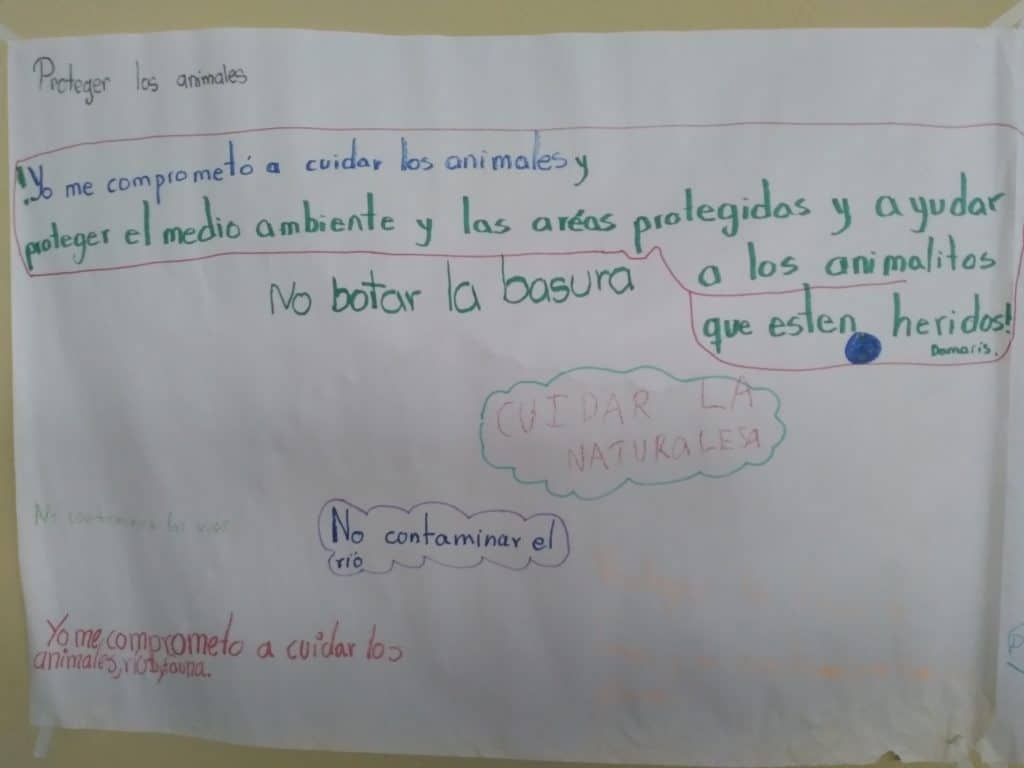 Proteger los animales
¡Yo me comprometó a cuidar los animales y
proteger el medio ambiente y las aréas protegidas y ayudar
a los animalitos
que esten heridos!
Damaris.
No botar la basura
CUIDAR LA
NATURALESA
No contaminar los rios
No contaminar el
río
Yo me comprometo a cuidar los
animales, río y fauna.